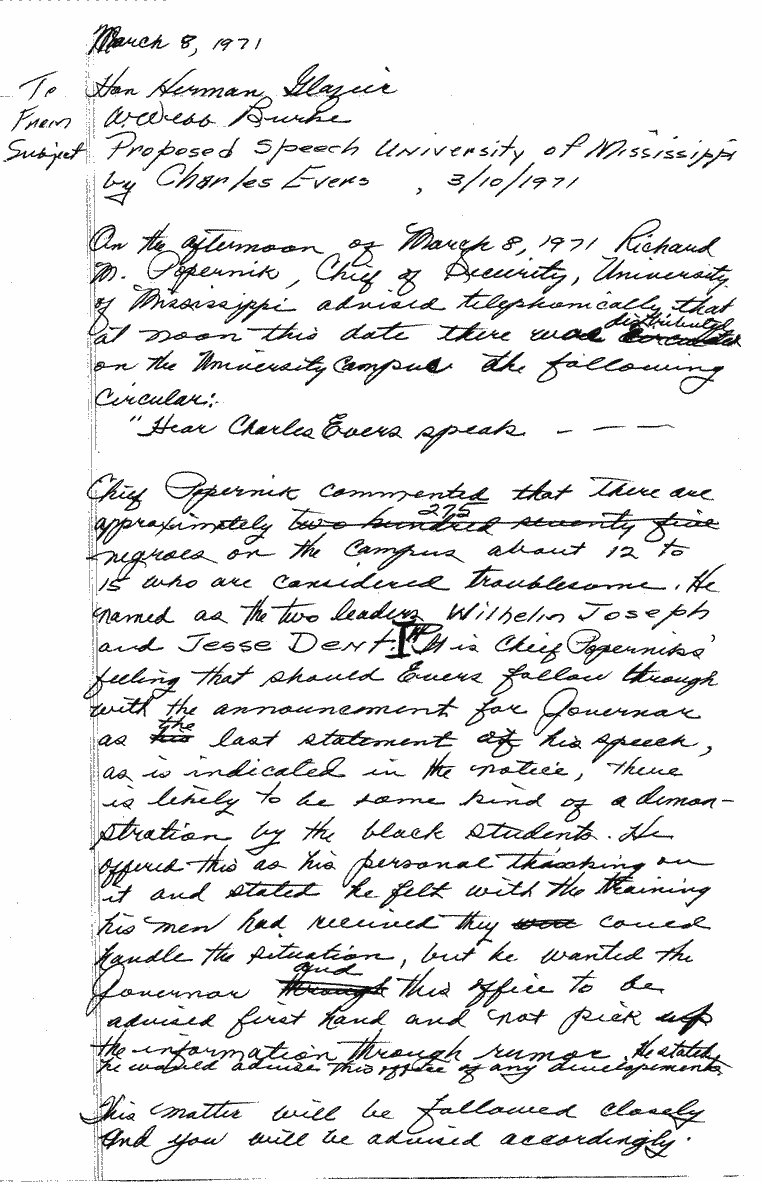 March 8, 1971
To Hon Herman Glazier
From W Webb Burke
Subject Proposed Speech University of Mississippi
by Charles Evers , 3/10/1971
On the afternoon of March 8, 1971 Richard
M. Popernik, Chief of Security, University
of Mississippi advised telephonically that
at noon this date there was distributed
on the University Campus the following
Circular:
"Hear Charles Evers speak - - -
Chief Popernik commented that there are
approximately two hundred seventy five 275
negroes on the campus about 12 to
15 who are considered troublesome. He
named as the two leaders Wilhelm Joseph
and Jesse Dent. It is Chief Poperniks'
feeling that should Evers follow through
with the announcement for Governor
as his the last statement of his speech,
as is indicated in the notice, there
is likely to be some kind of a demon-
stration by the black students. He
offered this as his personal thinking on
it and stated he felt with the training
his men had received they could
handle the situation, but he wanted the
Governor through and this office to be
advised first hand and not pick up
the information through rumor. He stated
he would advise this office of any developements.
This matter will be followed closely
and you will be advised accordingly.